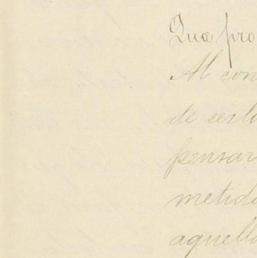 Que pro
Al con
de
pensar
metid
aquell